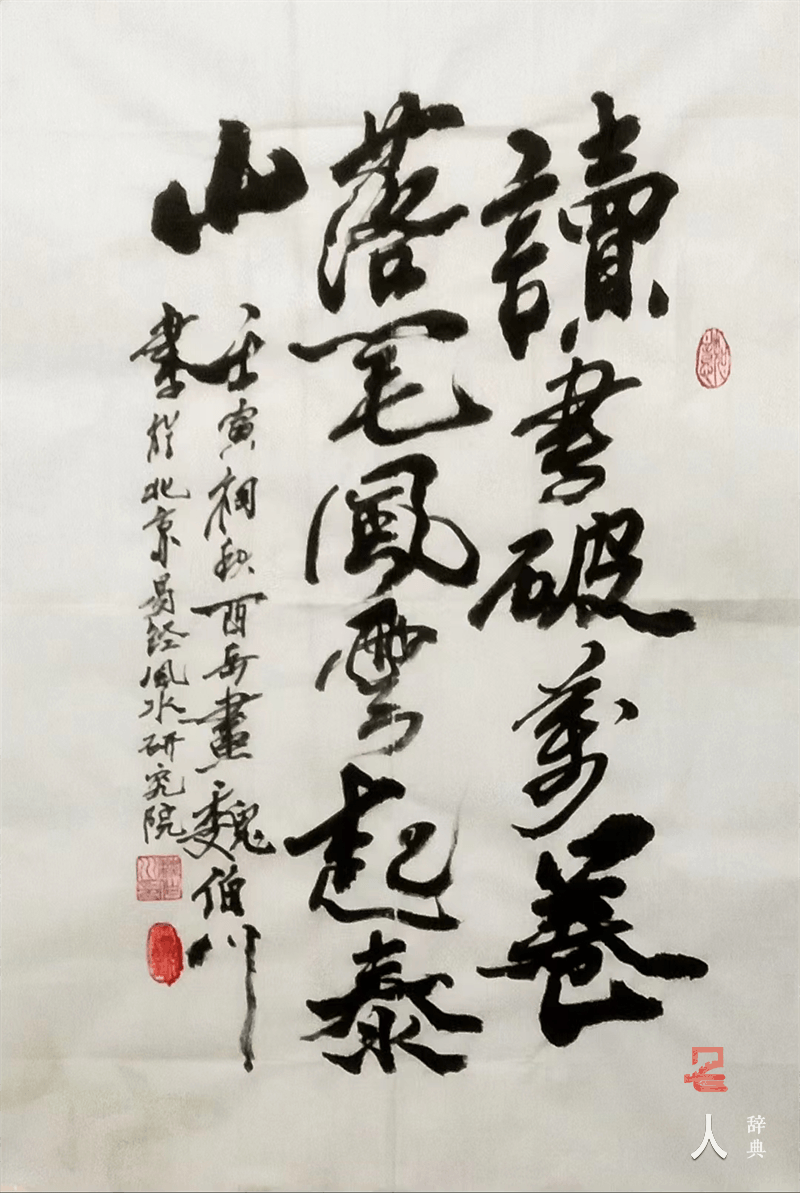 讀書破萬卷
落笔風雲起泰
山
壬寅初秋酉岳畫魏伯川
書於北京易经風水研究院
名人
辞典